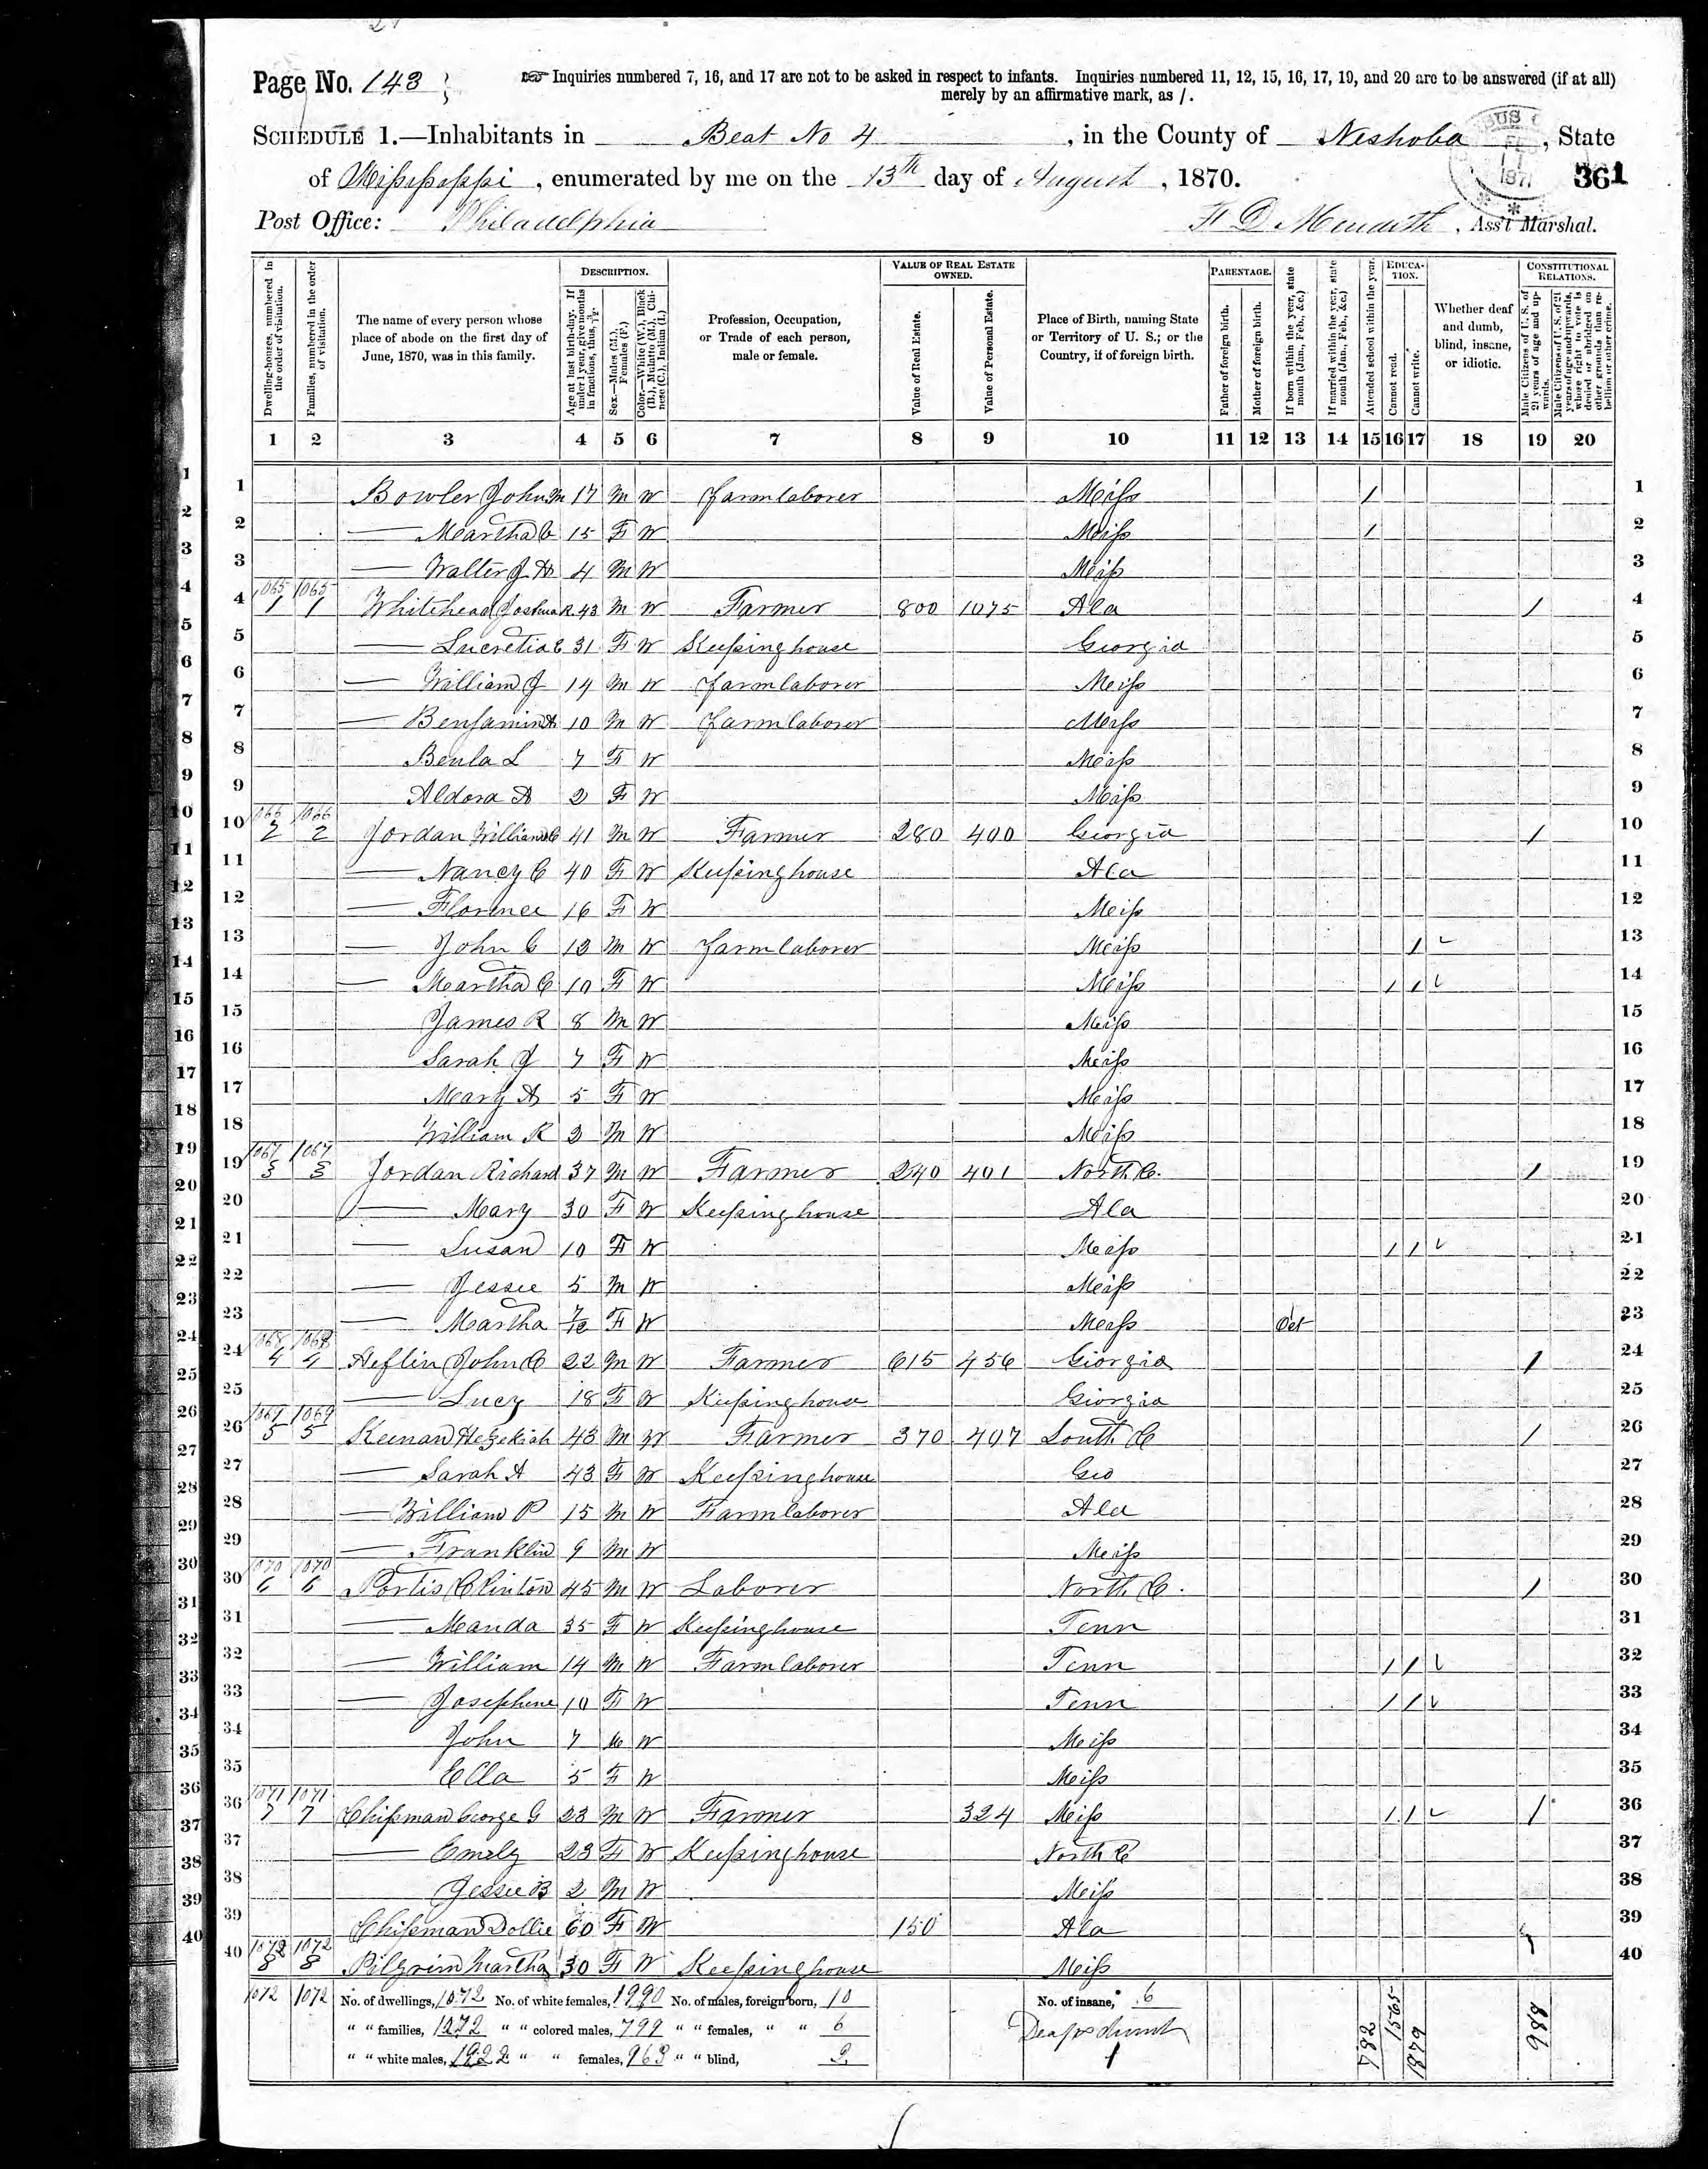 Page No. 143
☞ Inquiries numbered 7, 16, and 17 are not to be asked in respect to infants. Inquiries numbered 11, 12, 15, 16, 17, 19, and 20 are to be answered (if at all)
merely by an affirmative mark, as /.
SCHEDULE 1.—Inhabitants in Beat No 4, in the County of Neshoba, State
of Missisippi, enumerated by me on the 13th day of August, 1870.
361
Post Office: Philadelphia
Ass't Marshal.
Dwelling-houses, numbered in the order of visitation.
Families, numbered in the order of visitation.
The name of every person whose place of abode on the first day of June, 1870, was in this family.
DESCRIPTION.
Age at last birth-day. If under 1 year, give months in fractions, thus, 3/12.
Sex.—Males (M.), Females (F.)
Color.—White (W.), Black (B.), Mulatto (M.), Chinese (C.), Indian (I.)
Profession, Occupation, or Trade of each person, male or female.
VALUE OF REAL ESTATE OWNED.
Value of Real Estate.
Value of Personal Estate.
Place of Birth, naming State or Territory of U. S.; or the Country, if of foreign birth.
PARENTAGE.
Father of foreign birth.
Mother of foreign birth.
If born within the year, state month (Jan., Feb., &c.)
If married within the year, state month (Jan., Feb., &c.)
Attended school within the year.
EDUCATION.
Cannot read.
Cannot write.
Whether deaf and dumb, blind, insane, or idiotic.
CONSTITUTIONAL RELATIONS.
Male Citizens of U. S. of 21 years of age and upwards.
Male Citizens of U. S. of 21 years of age and upwards, whose right to vote is denied or abridged on other grounds than rebellion or other crime.
1 2 3 4 5 6 7 8 9 10 11 12 13 14 15 16 17 18 19 20
1 Bowler John M 17 M W Farm laborer Miss / 1
2 — Martha C 15 F W Miss / 2
3 — Walter J H 4 M W Miss 3
4 1065 1065 1 1 Whitehead Joshua R 43 M W Farmer 800 1075 Ala / 4
5 — Lucretia E 31 F W Keeping house Georgia 5
6 — William J 14 M W Farm laborer Miss 6
7 — Benjamin A 10 M W Farm laborer Miss 7
8 Beula L 7 F W Miss 8
9 Aldora A 2 F W Miss 9
10 1066 1066 2 2 Jordan William C 41 M W Farmer 280 400 Georgia / 10
11 — Nancy C 40 F W Keeping house Ala 11
12 — Florence 16 F W Miss 12
13 — John C 12 M W Farm laborer Miss / 13
14 — Martha C 10 F W Miss / / 14
15 James R 8 M W Miss 15
16 Sarah J 7 F W Miss 16
17 Mary A 5 F W Miss 17
18 William R 2 M W Miss 18
19 1067 1067 3 3 Jordan Richard 37 M W Farmer 240 401 North C. / 19
20 — Mary 30 F W Keeping house Ala 20
21 — Susan 10 F W Miss / / 21
22 — Jessee 5 M W Miss 22
23 — Martha 7/12 F W Miss Oct 23
24 1068 1068 4 4 Heflin John C 22 M W Farmer 615 456 Giorgia / 24
25 — Lucy 18 F W Keeping house Giorgia 25
26 1069 1069 5 5 Keenan Hezekiah 43 M W Farmer 370 407 South C / 26
27 — Sarah A 43 F W Keeping house Geo 27
28 — William P 15 M W Farm laborer Ala 28
29 — Franklin 9 M W Miss 29
30 1070 1070 6 6 Portis Clinton 45 M W Laborer North C. / 30
31 — Manda 35 F W Keeping house Tenn 31
32 — William 14 M W Farm laborer Tenn / / 32
33 — Josephine 10 F W Tenn / / 33
34 John 7 M W Miss 34
35 Ella 5 F W Miss 35
36 1071 1071 7 7 Chipman George G 23 M W Farmer 324 Miss / / / 36
37 — Emily 23 F W Keeping house North C 37
38 Jessee B 2 M W Miss 38
39 Chipman Dollie 60 F W 150 Ala 39
40 1072 1072 8 8 Pilgrim Martha 30 F W Keeping house Miss 40
1072 1072 No. of dwellings, 1072 No. of white females, 1990 No. of males, foreign born, 10 No. of insane, 6
" " families, 1072 " " colored males, 799 " " females, " " 6 Deaf & dumb
" " white males, 1922 " " females, 963 " " blind, 2 1
782 1565 1879 988